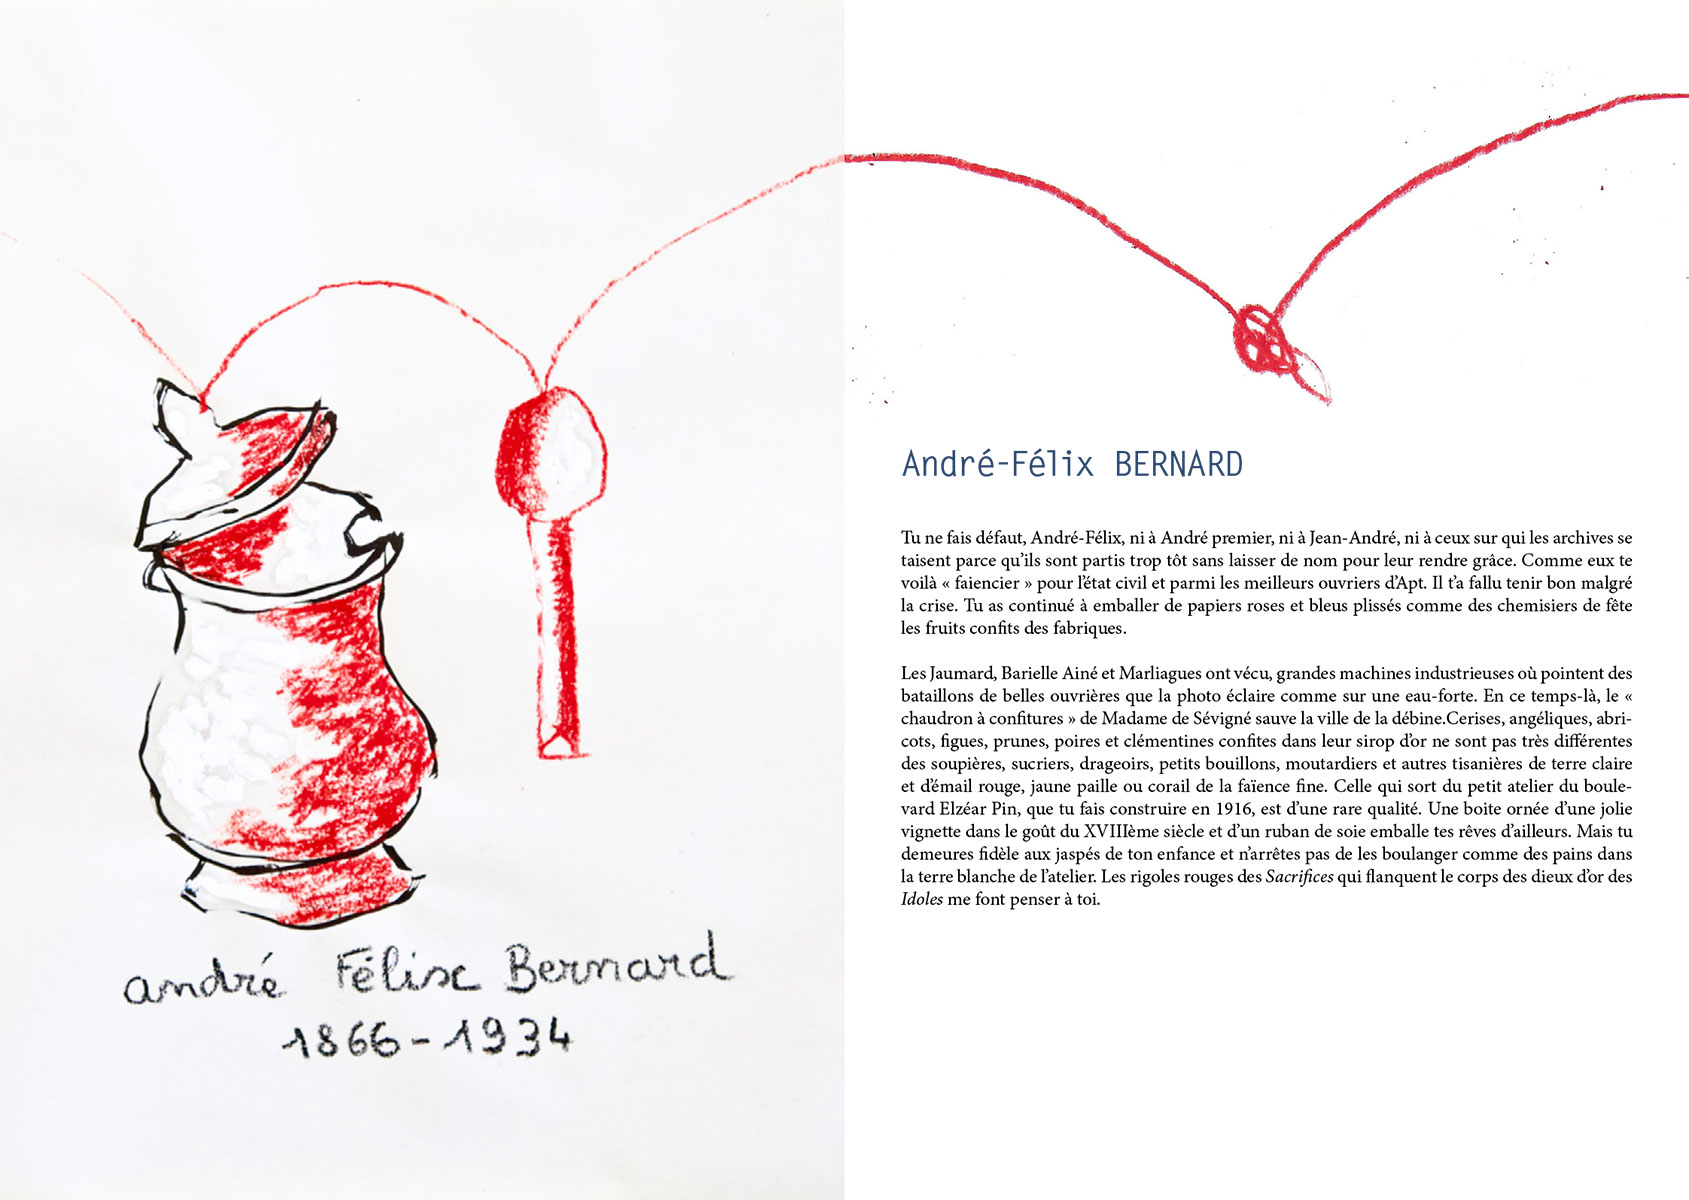 andré Félix Bernard
1866-1934
André-Félix BERNARD
Tu ne fais défaut, André-Félix, ni à André premier, ni à Jean-André, ni à ceux sur qui les archives se
taisent parce qu’ils sont partis trop tôt sans laisser de nom pour leur rendre grâce. Comme eux te
voilà « faiencier » pour l’état civil et parmi les meilleurs ouvriers d’Apt. Il t’a fallu tenir bon malgré
la crise. Tu as continué à emballer de papiers roses et bleus plissés comme des chemisiers de fête
les fruits confits des fabriques.
Les Jaumard, Barielle Ainé et Marliagues ont vécu, grandes machines industrieuses où pointent des
bataillons de belles ouvrières que la photo éclaire comme sur une eau-forte. En ce temps-là, le «
chaudron à confitures » de Madame de Sévigné sauve la ville de la débine.Cerises, angéliques, abri-
cots, figues, prunes, poires et clémentines confites dans leur sirop d’or ne sont pas très différentes
des soupières, sucriers, drageoirs, petits bouillons, moutardiers et autres tisanières de terre claire
et d’émail rouge, jaune paille ou corail de la faïence fine. Celle qui sort du petit atelier du boule-
vard Elzéar Pin, que tu fais construire en 1916, est d’une rare qualité. Une boite ornée d’une jolie
vignette dans le goût du XVIIIème siècle et d’un ruban de soie emballe tes rêves d’ailleurs. Mais tu
demeures fidèle aux jaspés de ton enfance et n’arrêtes pas de les boulanger comme des pains dans
la terre blanche de l’atelier. Les rigoles rouges des Sacrifices qui flanquent le corps des dieux d’or des
Idoles me font penser à toi.